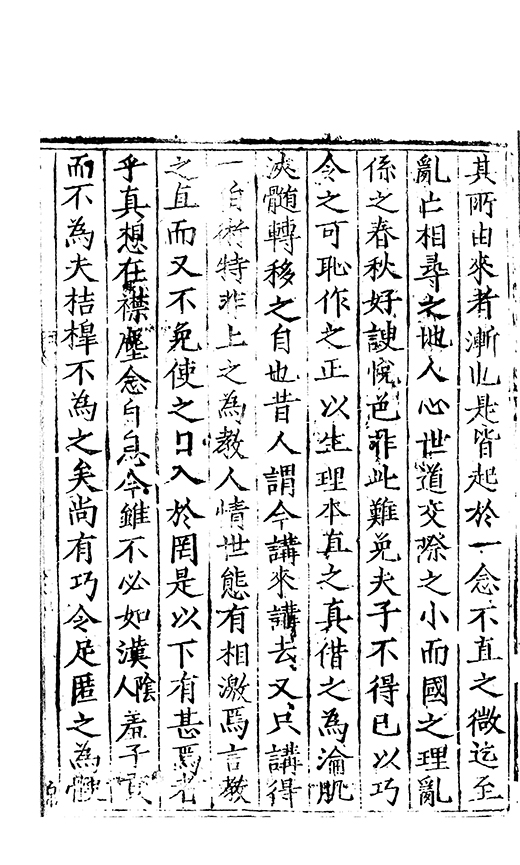 其所由來者漸也是皆起於一念不直之微迄至
亂亡相尋之地人心世道交際之小而國之理亂
係之春秋好諛悅色非此難免夫子不得已以巧
令之可恥作之正以生理本直之真借之為淪肌
浹髓轉移之自也昔人謂今講來講去又只講得
一自術特非上之為教人情世態有相激焉言教
之直而又不免使之日入於罔是以下有甚焉者
乎真想在襟塵念自息今雖不必如漢人陰羞子貢
而不為夫桔槔不為之矣尚有巧令足匿之為